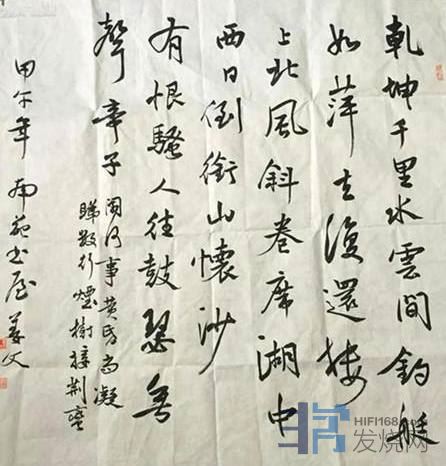 乾坤千里水雲間釣艇
如萍去復還樓
上北風斜卷席湖中
西日倒銜山懷沙
有恨騷人往鼓瑟無
聲帝子
閑何事黄昏尚凝
睇數行煙樹接荆蠻
甲午年 南苑书屋
HIFI168.com
发烧网